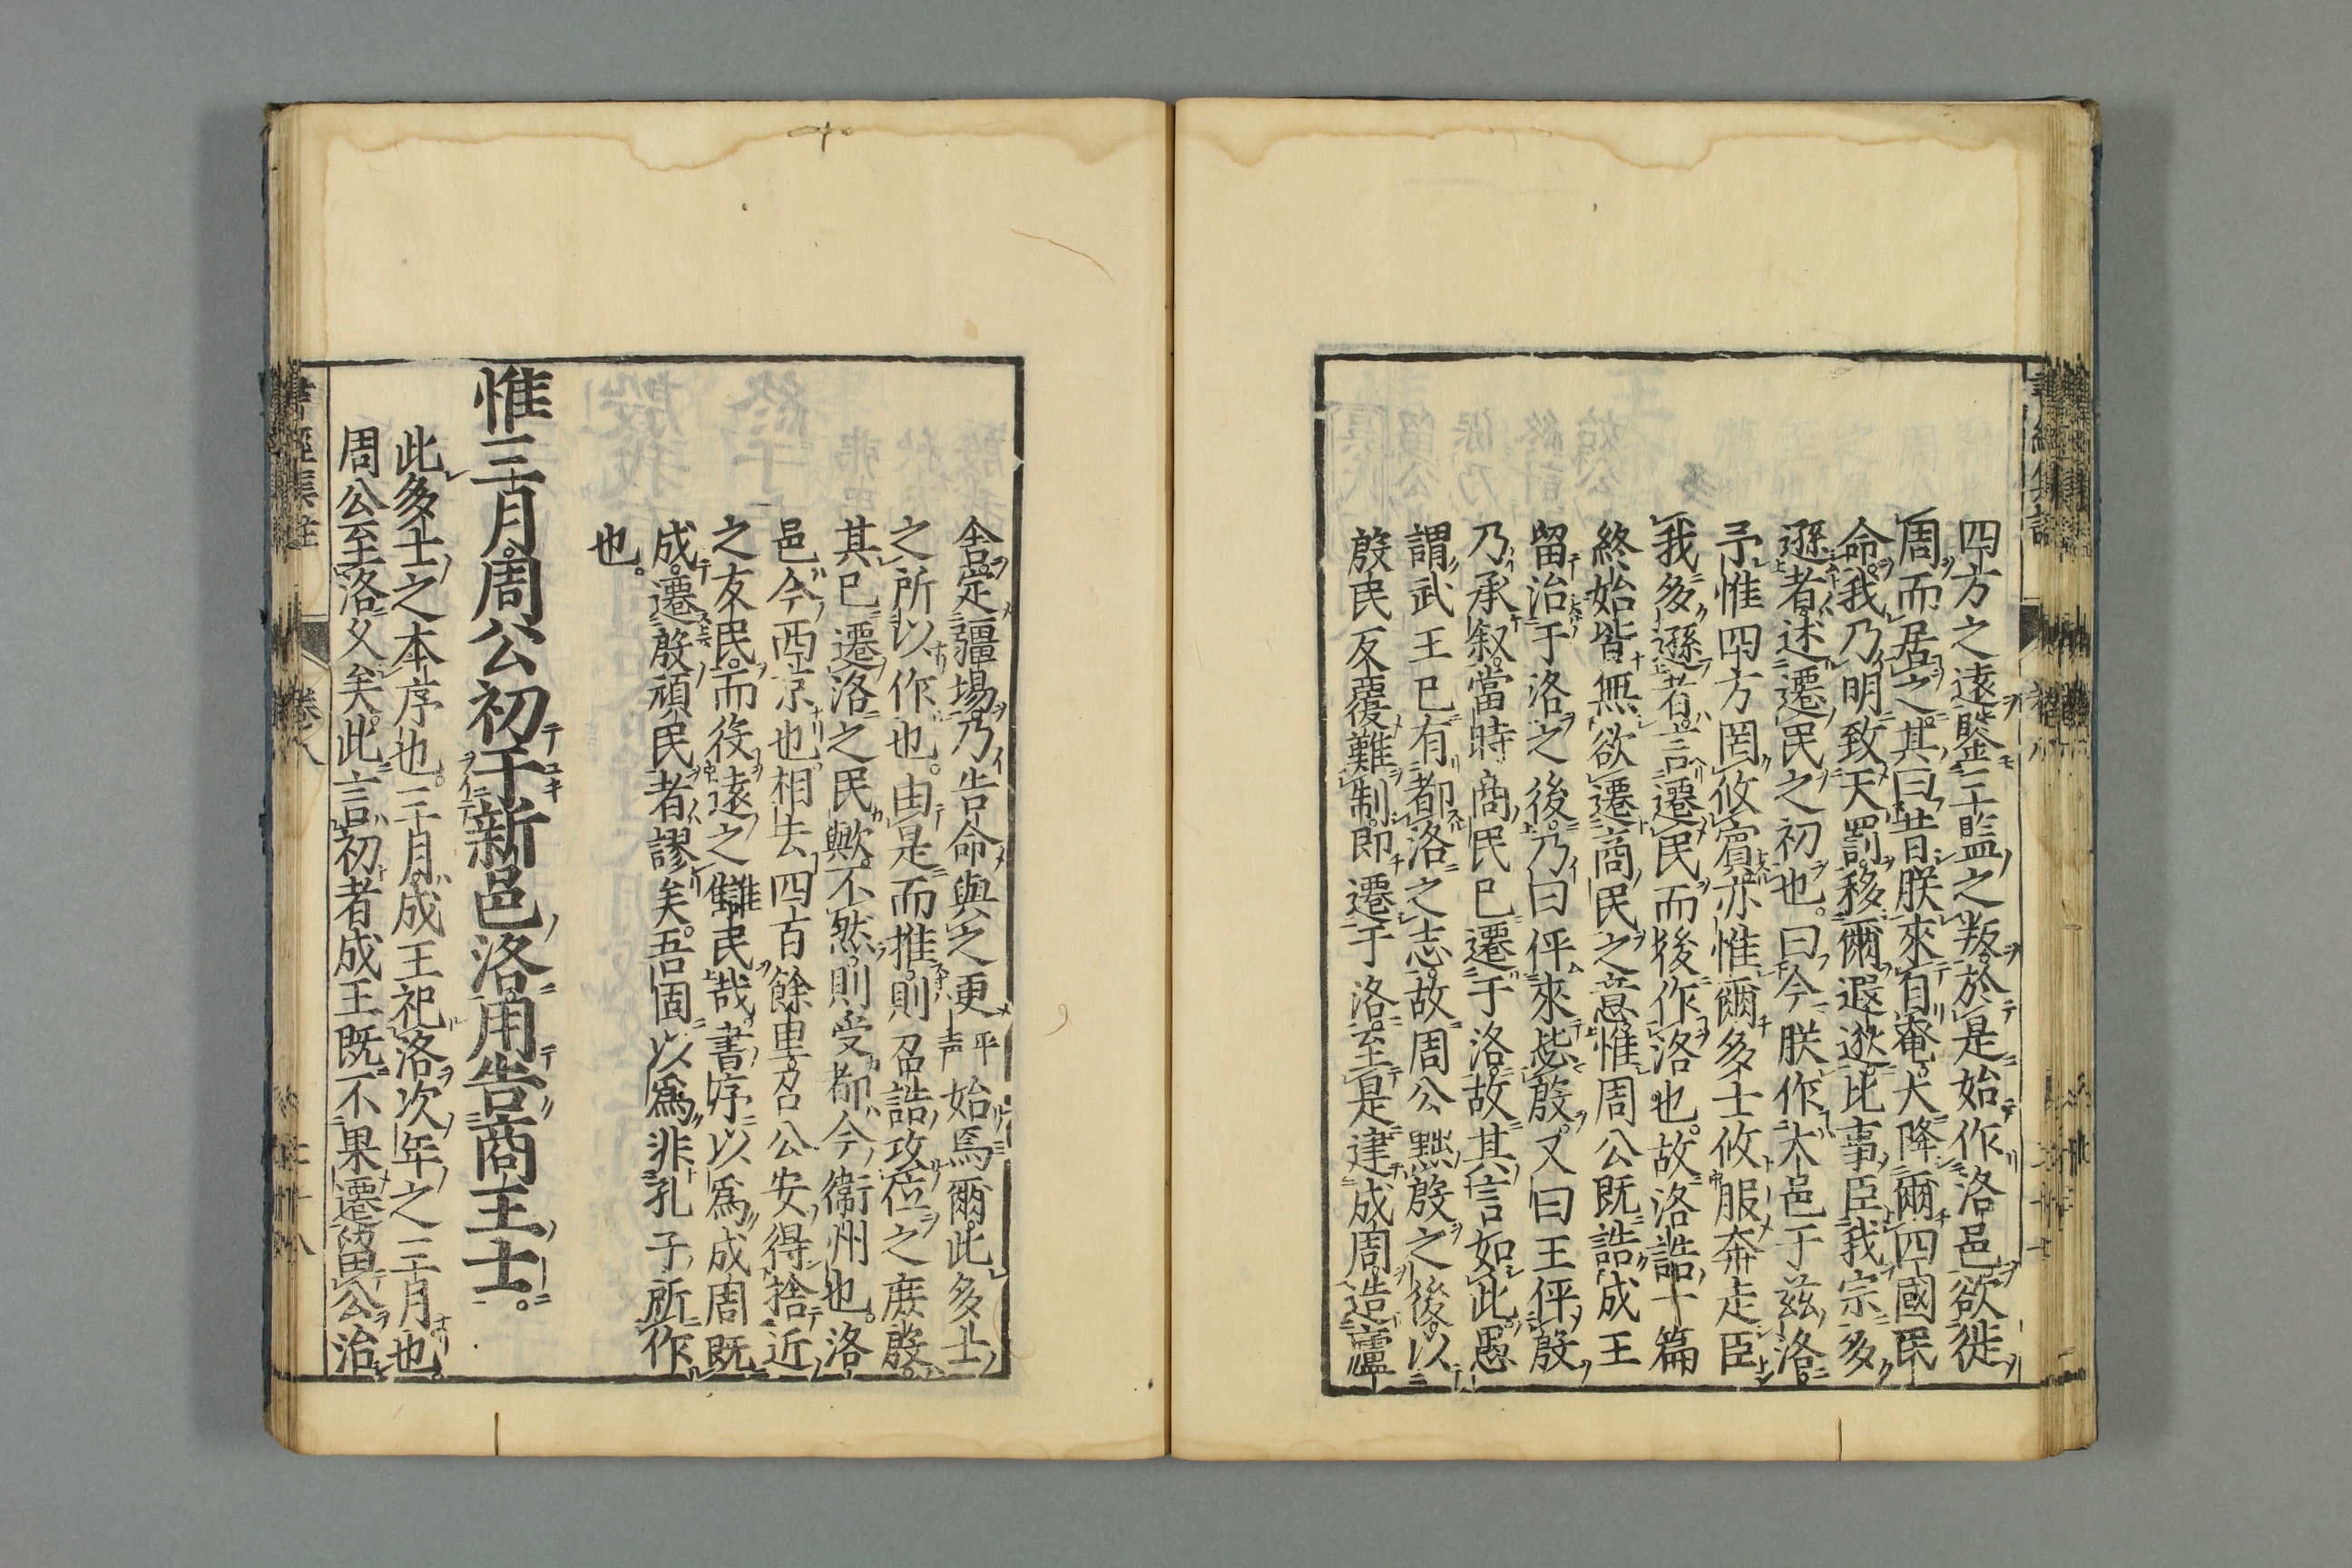 四方之遠鑒三監之叛於是始作洛邑欲徙
周而居之其曰昔朕來自奄大降爾四國民
命我乃明致天罰移爾遐逖比事臣我宗多
遜者述遷民之初也。曰今朕作大邑于茲洛。
予惟四方罔攸賓亦惟爾多士攸服奔走臣
我多遜者言遷民而後作洛也。故洛誥一篇
終始皆無欲遷商民之意惟周公既誥成王
留治于洛之後乃曰伻來毖殷。又曰王伻殷
乃承叙。當時商民已遷于洛。故其言如此。愚
謂武王已有都洛之志。故周公黜殷之後。以
殷民反覆難制。即遷于洛。至是建成周。造廬
舍。定疆埸。乃告命與之更平声始焉爾。此多士
之所以作也。由是而推。則召誥攻位之庶殷。
其已遷洛之民歟。不然。則受都今衞州也。洛
邑今西京也。相去四百餘里。召公安得捨近
之友民。而役遠之讎民哉。書序以爲成周既
成。遷殷頑民者謬矣。吾固以爲非孔子所作
也。
惟三月。周公初于新邑洛。用告商王士。
此多士之本序也。三月。成王祀洛次年之三月也。
周公至洛久矣。此言初者成王既不果遷留公治